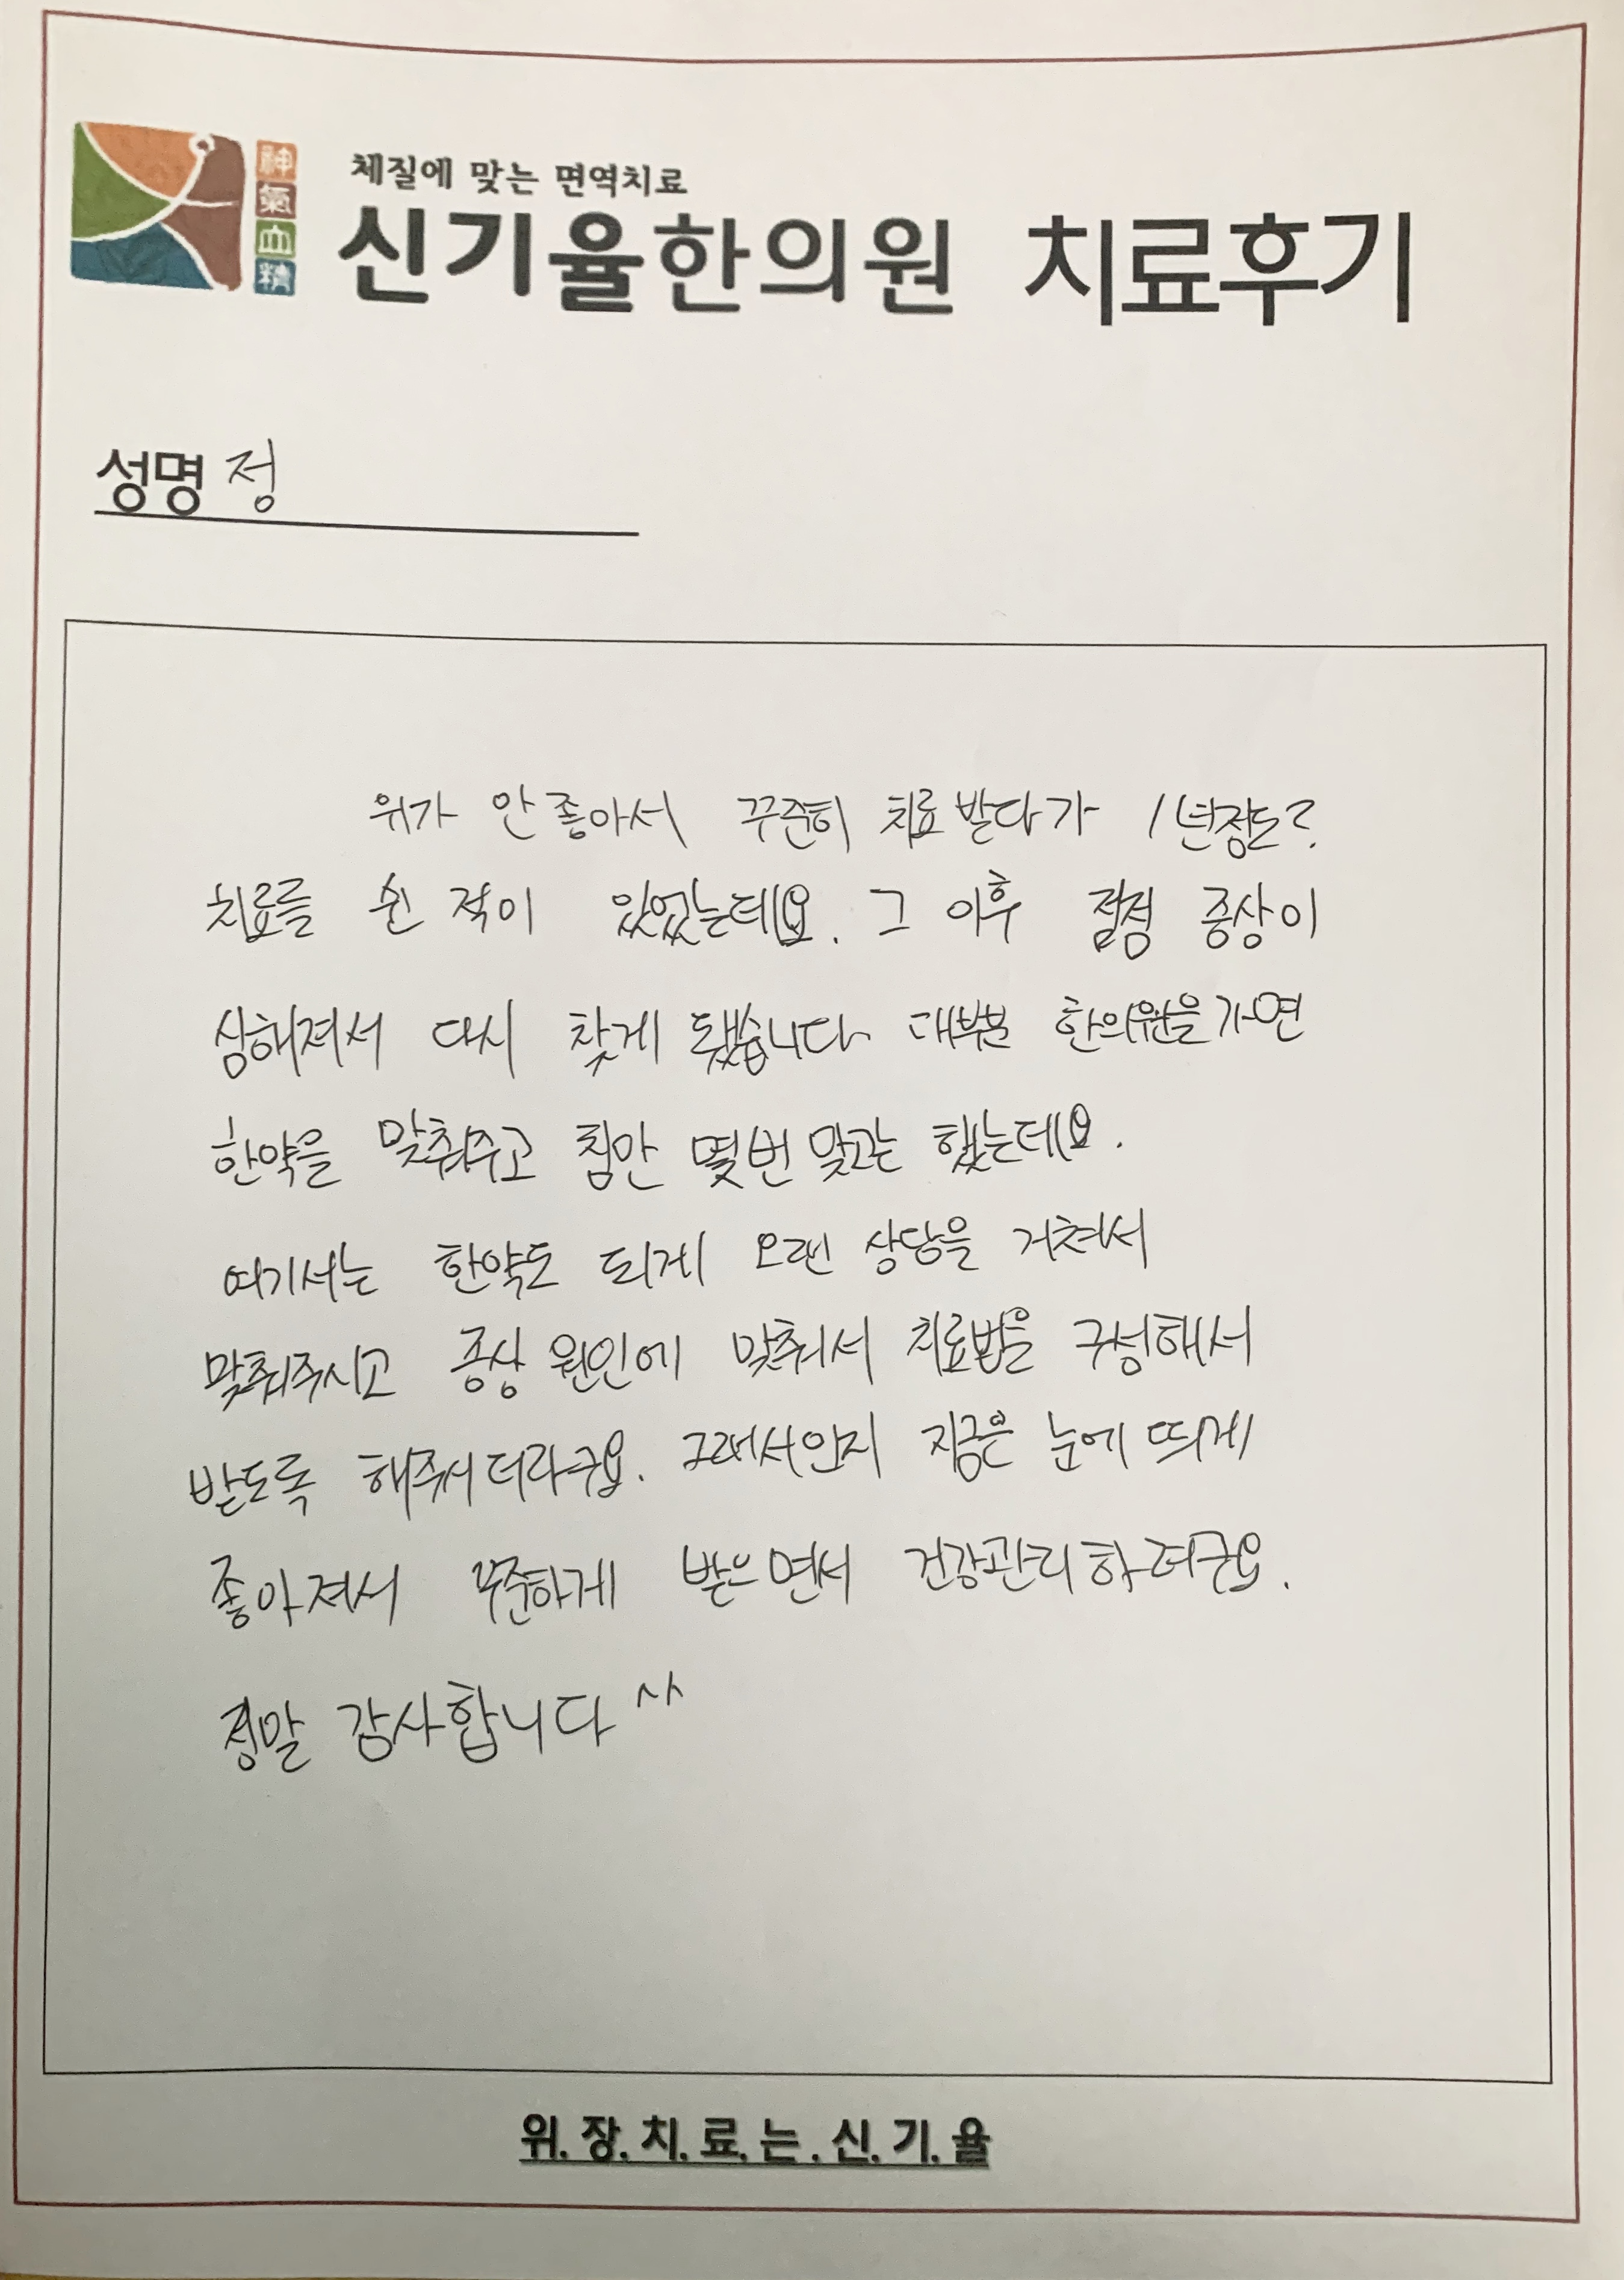 神
氣
血
精
체질에 맞는 면역치료
신기율한의원 치료후기
성명 정
위가 안 좋아서 꾸준히 치료 받다가 1년정도?
치료를 쉰 적이 있었는데요. 그 이후 점점 증상이
심해져서 다시 찾게 됐습니다 대부분 한의원을 가면
한약을 맞춰주고 침만 몇번 맞고는 했는데요.
여기서는 한약도 되게 오랜 상담을 거쳐서
맞춰주시고 증상 원인에 맞춰서 치료법을 구성해서
받도록 해주시더라구요. 그래서인지 지금은 눈에 띄게
좋아져서 꾸준하게 받으면서 건강관리하려구요.
정말 감사합니다 ^^
위.장.치.료.는.신.기.율